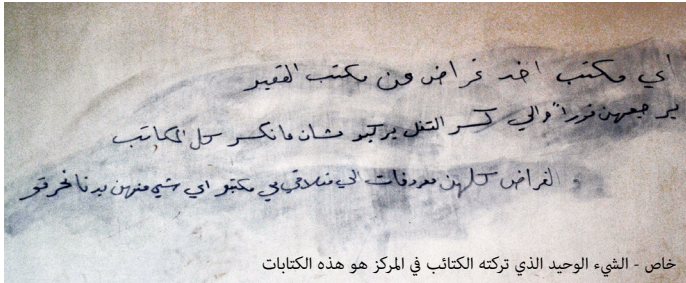 اي مكتب اخد غراض من مكتب العقيد
يرجعهن فوراً والي كسر القفل يركبو مشان ما نكسر كل المكاتب
و الغراض كلهن معروفات الي منلاقي في مكتبو اي شي منهن بدنا نحرقو
خاص - الشيء الوحيد الذي تركته الكتائب في المركز هو هذه الكتابات